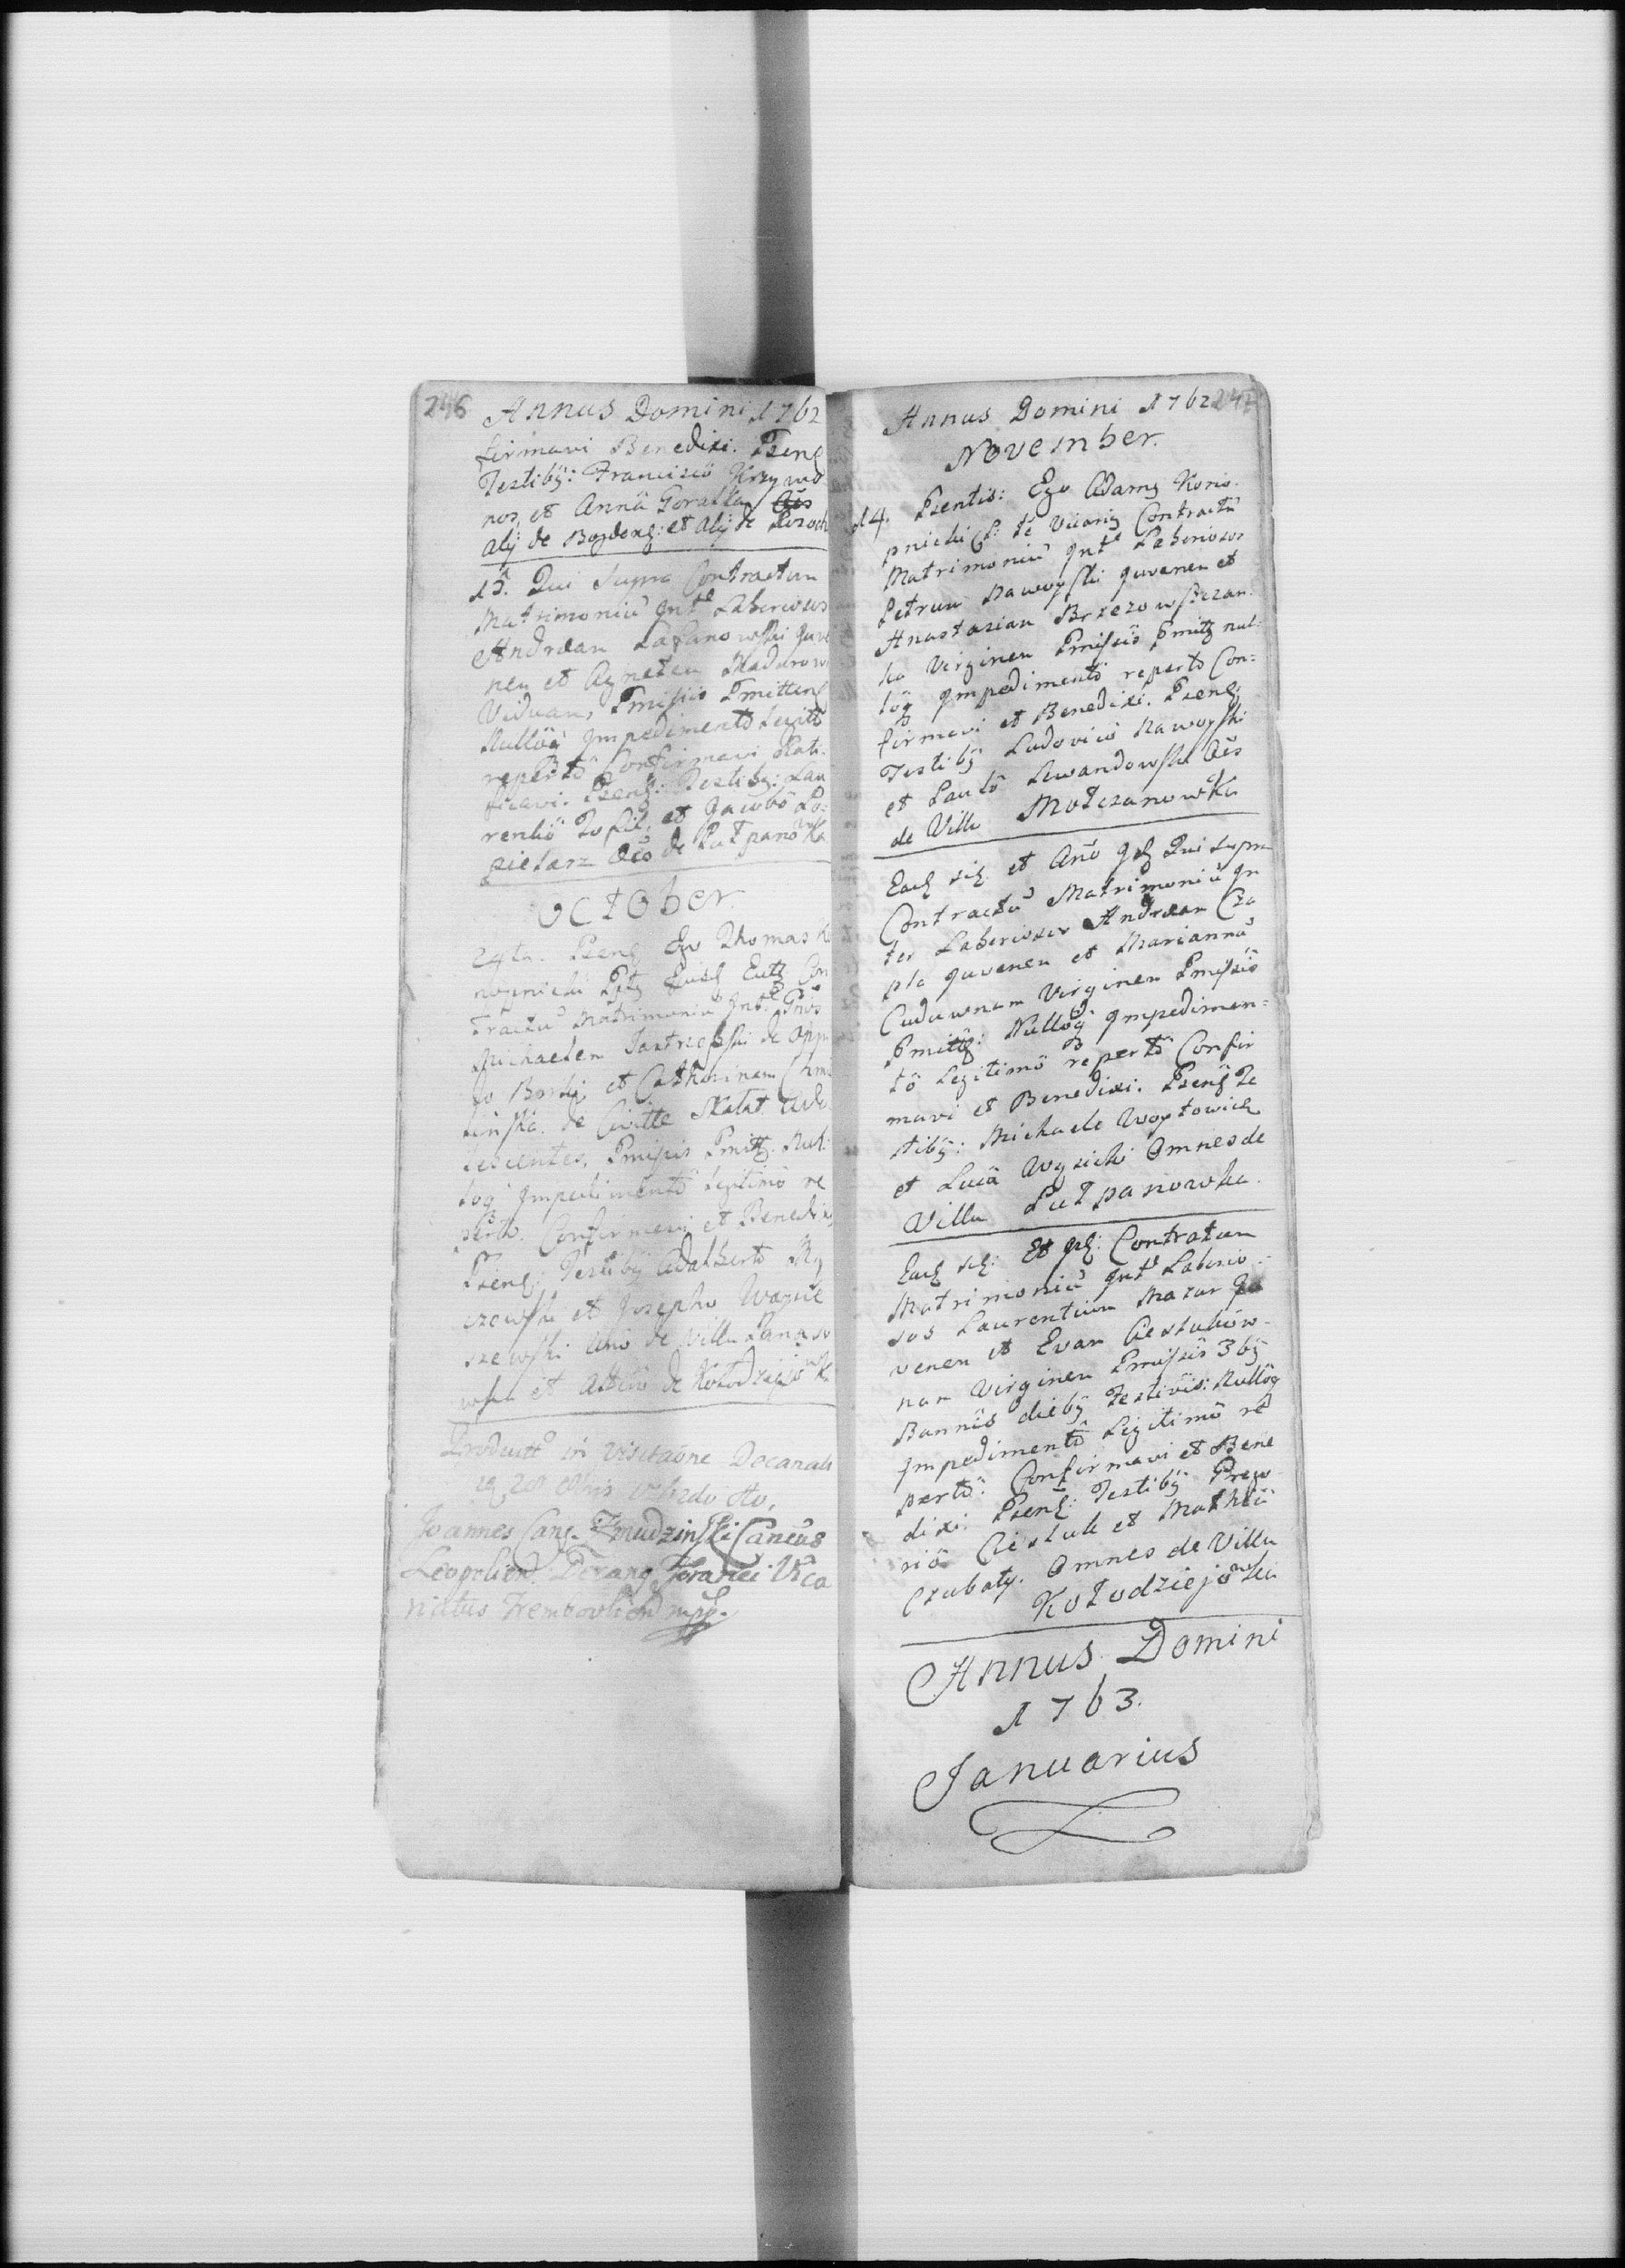 246 Annus Domini 1762
firmavi Benedixi. Psenq
Testibq: Franciscô Krzywo
nos, et Annâ Goralka
alÿ de et alÿ de
13. Qui Supra Contractum
Matrimoniu Int Laboriosos
Andream Juve
nem et Agnetem
Viduam, Pmissis Pmittenq
Nulloq Impedimento Legito
repertô Confirmavi Rati
ficavi. Psenq: Testibq: Lau
rentiô et Jacobô Lo
pietarz Oẽs de Łutpanowka
October.
24ta. Psenq Ego Thomas K
nopnicki
tractu Matrimoniu Int
Michaelem Jastrzepski de Oppi
do et Catharinam Chmi
linska. de Civitte Skałat. Ado
lescentes, Pmissis Pmitt. Nul
loq Impedimentô Legitimô re
pertô. Confirmavi et Benedixi
Psenq: Testibq Adalbertô
czewski et Josepho
szewski Unô de Villa Panaso
wka et Alterô de Kołodziejówk
Product in Visitaõne Decanali
Joannes Canq. Zmudzinski Canẽus
Leopolien. Decanq Foraneq Vica
riatus Trembowlien mpp.
Annus Domini 1762 247
November.
14. Psentis: Ego Adamq Kono
pnicki Vicariq Contractu
Matrimoniu Int Laboriosos
Petrum Nawoyski Juvenem et
Anastasiam Brzezowszczan
ka Virginem Pmissis Pmitt nul
loq Impedimentô repertô Con=
firmavi et Benedixi. Psenq.
Testibq Ludovicô Nawoyski
et Paulô Lewandowski Oẽs
de Villa Mołczanowka
Eadq die et Anô Qui Supra
Contractu Matrimoniu In
ter Laboriosos Andream Cza
pla Juvenem et Marianna
Cudawnam Virginem Pmissis
Pmitt: Nulloq Impedimen=
tô Legitimô repertô Confir
mavi et Benedixi. Psenq Te
stibq: Michaele Woytowicz
et Lucâ Wysicki Omnes de
Villa Łutpanowka.
Eadq die: Et Contratum
Matrimoniu Int Laborio=
sos Laurentium Mazur Ju
venem et Evam Ciestukow-
nam Virginem Pmissis 3bq
Bannis diebq Festivis: Nulloq
Impedimentô Legitimô re
pertô: Confirmavi et Bene
dixi. Psenq: Testibq Grego
riô Ciestuk et Mathiâ
Czubaty. Omnes de Villa
Kołodziejówka
Annus Domini
1763.
Januarius